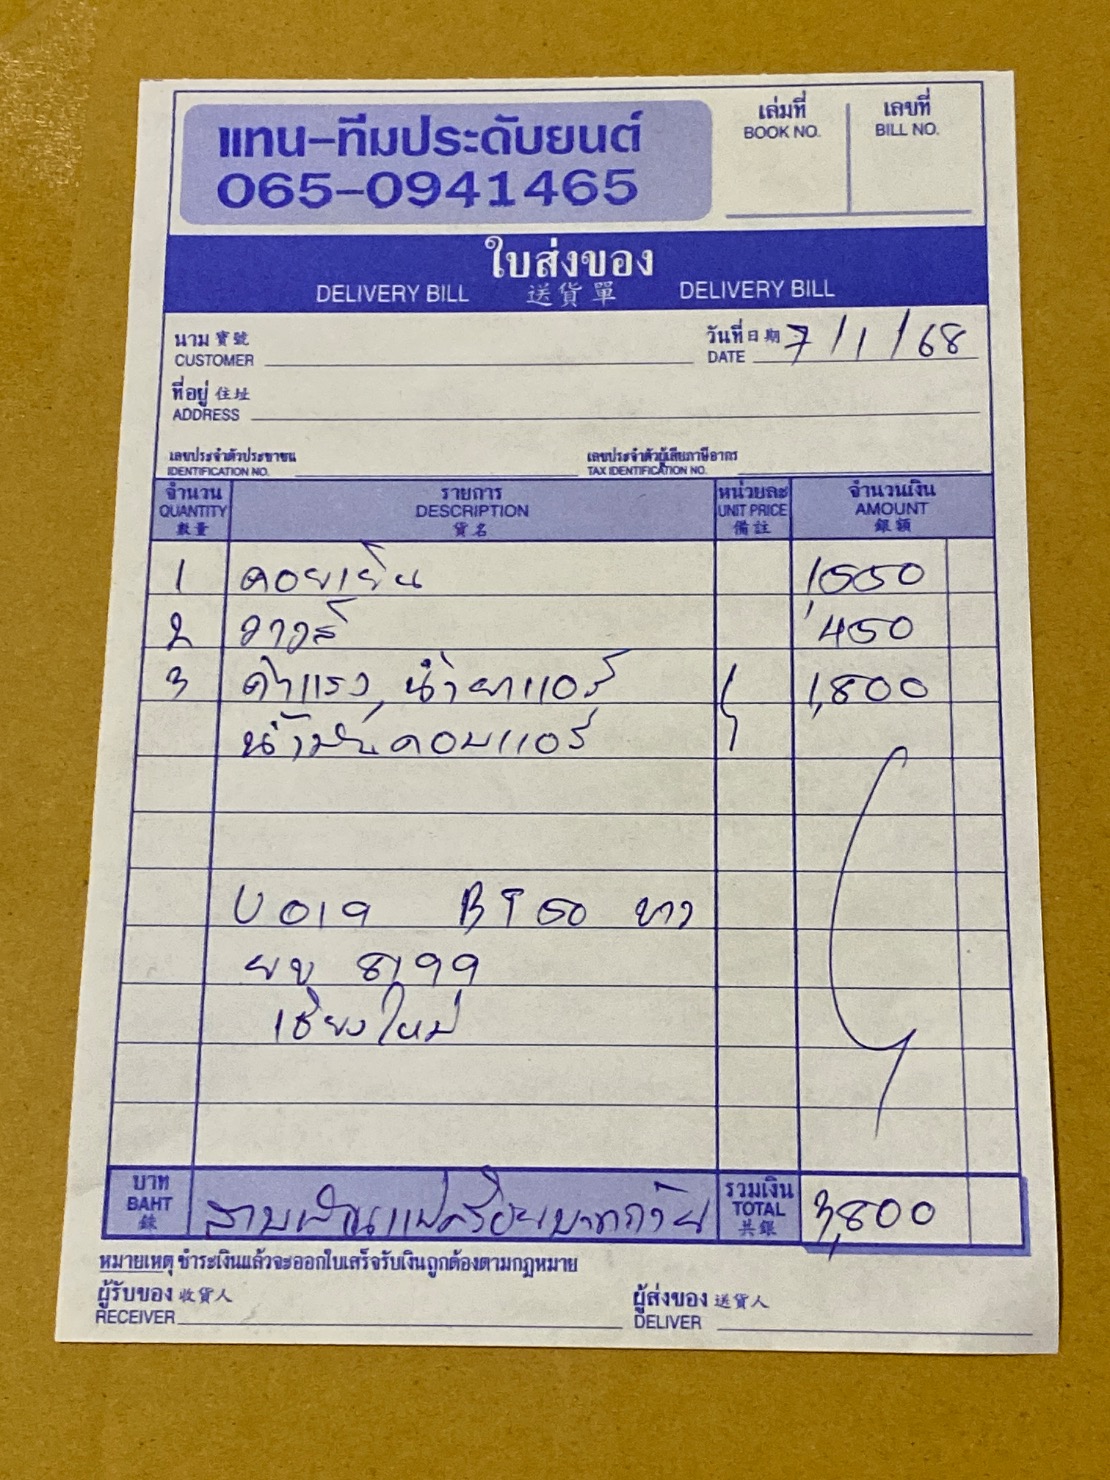 แทน-ทีมประดับยนต์
065-0941465
เล่มที่ เลขที่
BOOK NO. BILL NO.
ใบส่งของ
DELIVERY BILL 送貨單 DELIVERY BILL
นาม 寶號 วันที่ 日期 7/1/68
CUSTOMER DATE
ที่อยู่ 住址
ADDRESS
เลขประจำตัวประชาชน เลขประจำตัวผู้เสียภาษีอากร
IDENTIFICATION NO. TAX IDENTIFICATION NO.
จำนวน รายการ หน่วยละ จำนวนเงิน
QUANTITY DESCRIPTION UNIT PRICE AMOUNT
數量 貨名 備註 銀額
1 คอยเย็น 1550
2 วาวล์ 450
3 ค่าแรง, น้ำยาแอร์ 1,800
น้ำมันคอมแอร์
U019 BT50 ขาว
ยข 8199
เชียงใหม่
บาท สามพันแปดร้อยบาทถ้วน รวมเงิน 3,800
BAHT TOTAL
銖 共銀
หมายเหตุ ชำระเงินแล้วจะออกใบเสร็จรับเงินถูกต้องตามกฎหมาย
ผู้รับของ 收貨人 ผู้ส่งของ 送貨人
RECEIVER DELIVER